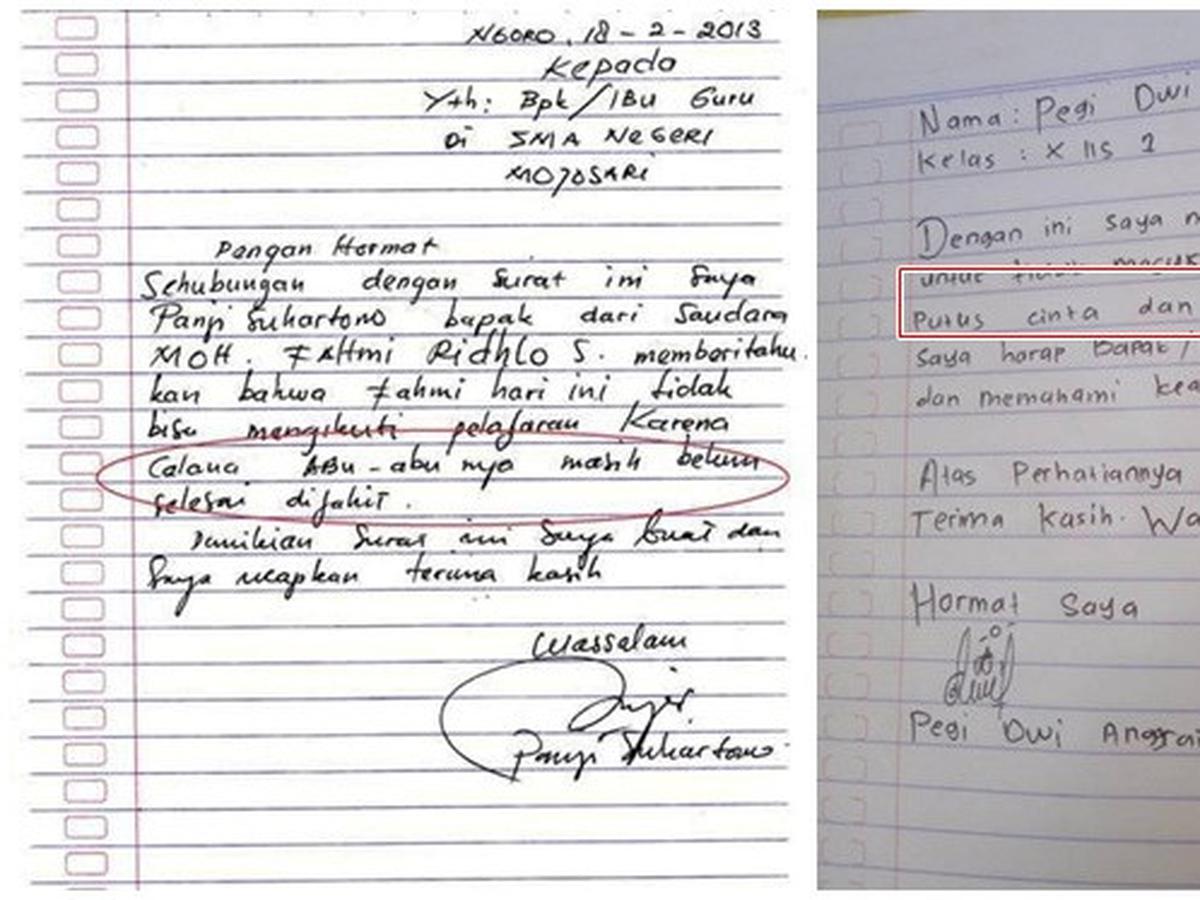 NGORO, 18 - 2 - 2013
Kepada
Yth: Bpk/IBu Guru
Di SMA NEGERI
MOJOSARI
Dengan Hormat
Sehubungan dengan surat ini Saya
Panji Suhartono bapak dari Saudara
MOH. FAHmi Ridhlo S. memberitahu
kan bahwa Fahmi hari ini tidak
bisa mengikuti pelajaran Karena
Celana ABu-abu nya masih belum
selesai dijahit.
Demikian Surat ini Saya buat dan
Saya ucapkan terima kasih
Wassalam
Panji Suhartono
Nama : Pegi Dwi
Kelas : X IIS 1
Dengan ini saya
untuk tidak masuk
Putus cinta dan
Saya harap Bapak/
dan memahami
Atas Perhatiannya
Terima Kasih.
Hormat Saya
Pegi Dwi